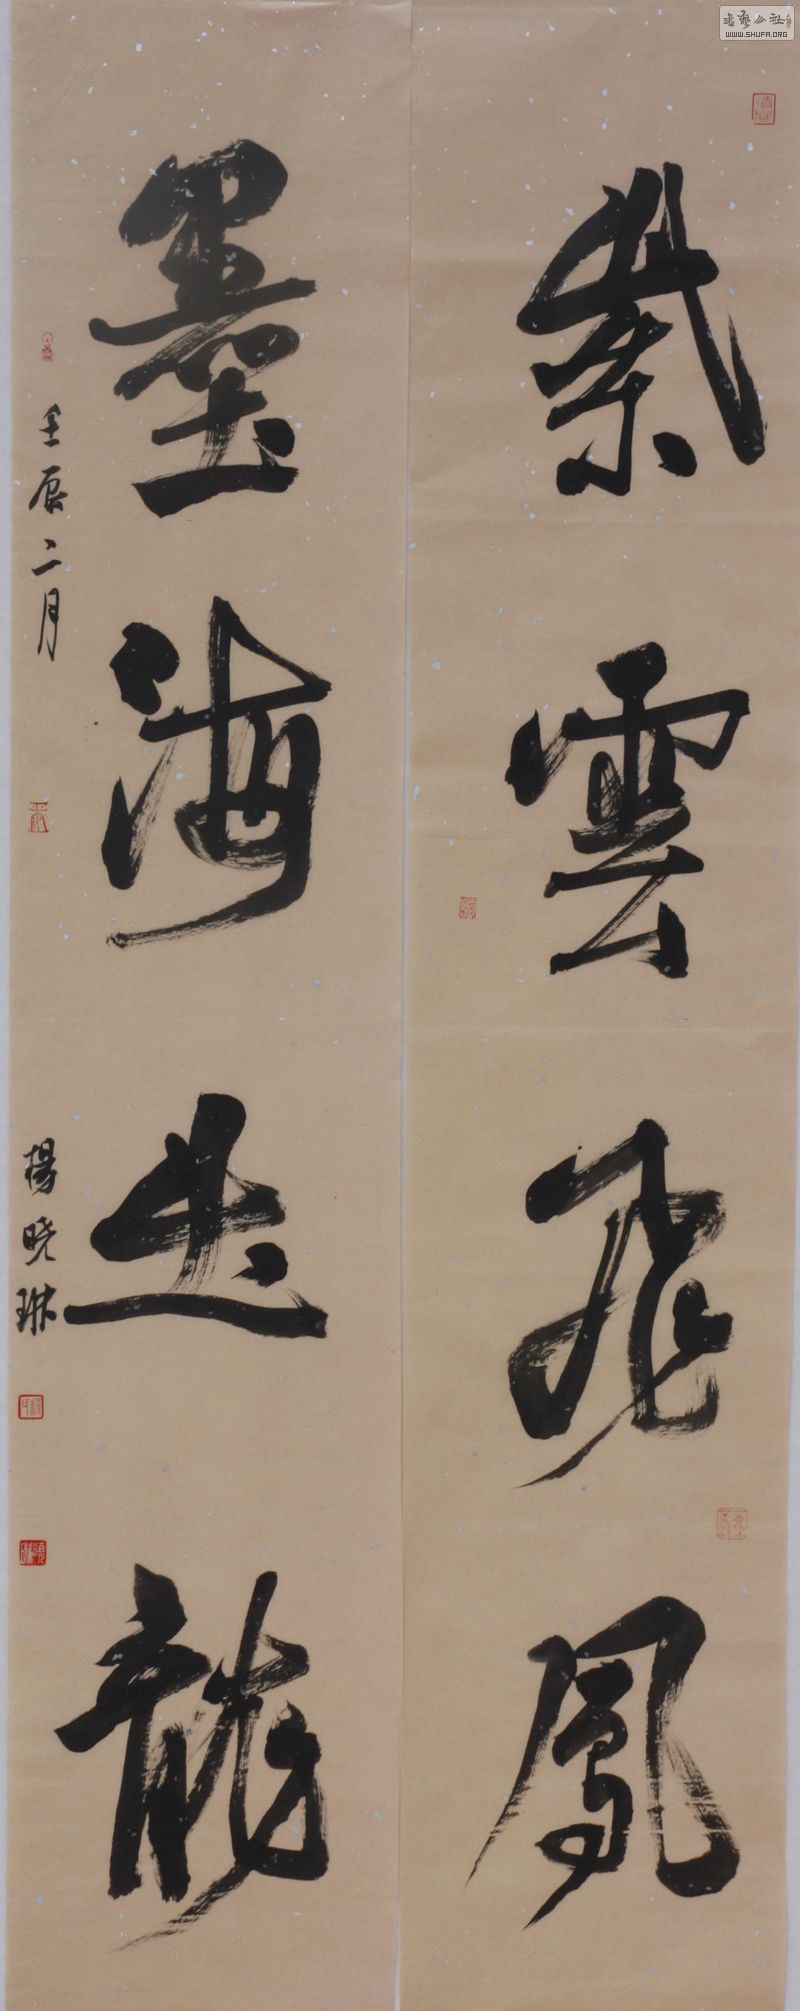 紫雲飛鳳
墨海走龍
壬辰二月
楊晓琳
書藝公社
WWW.SHUFA.ORG